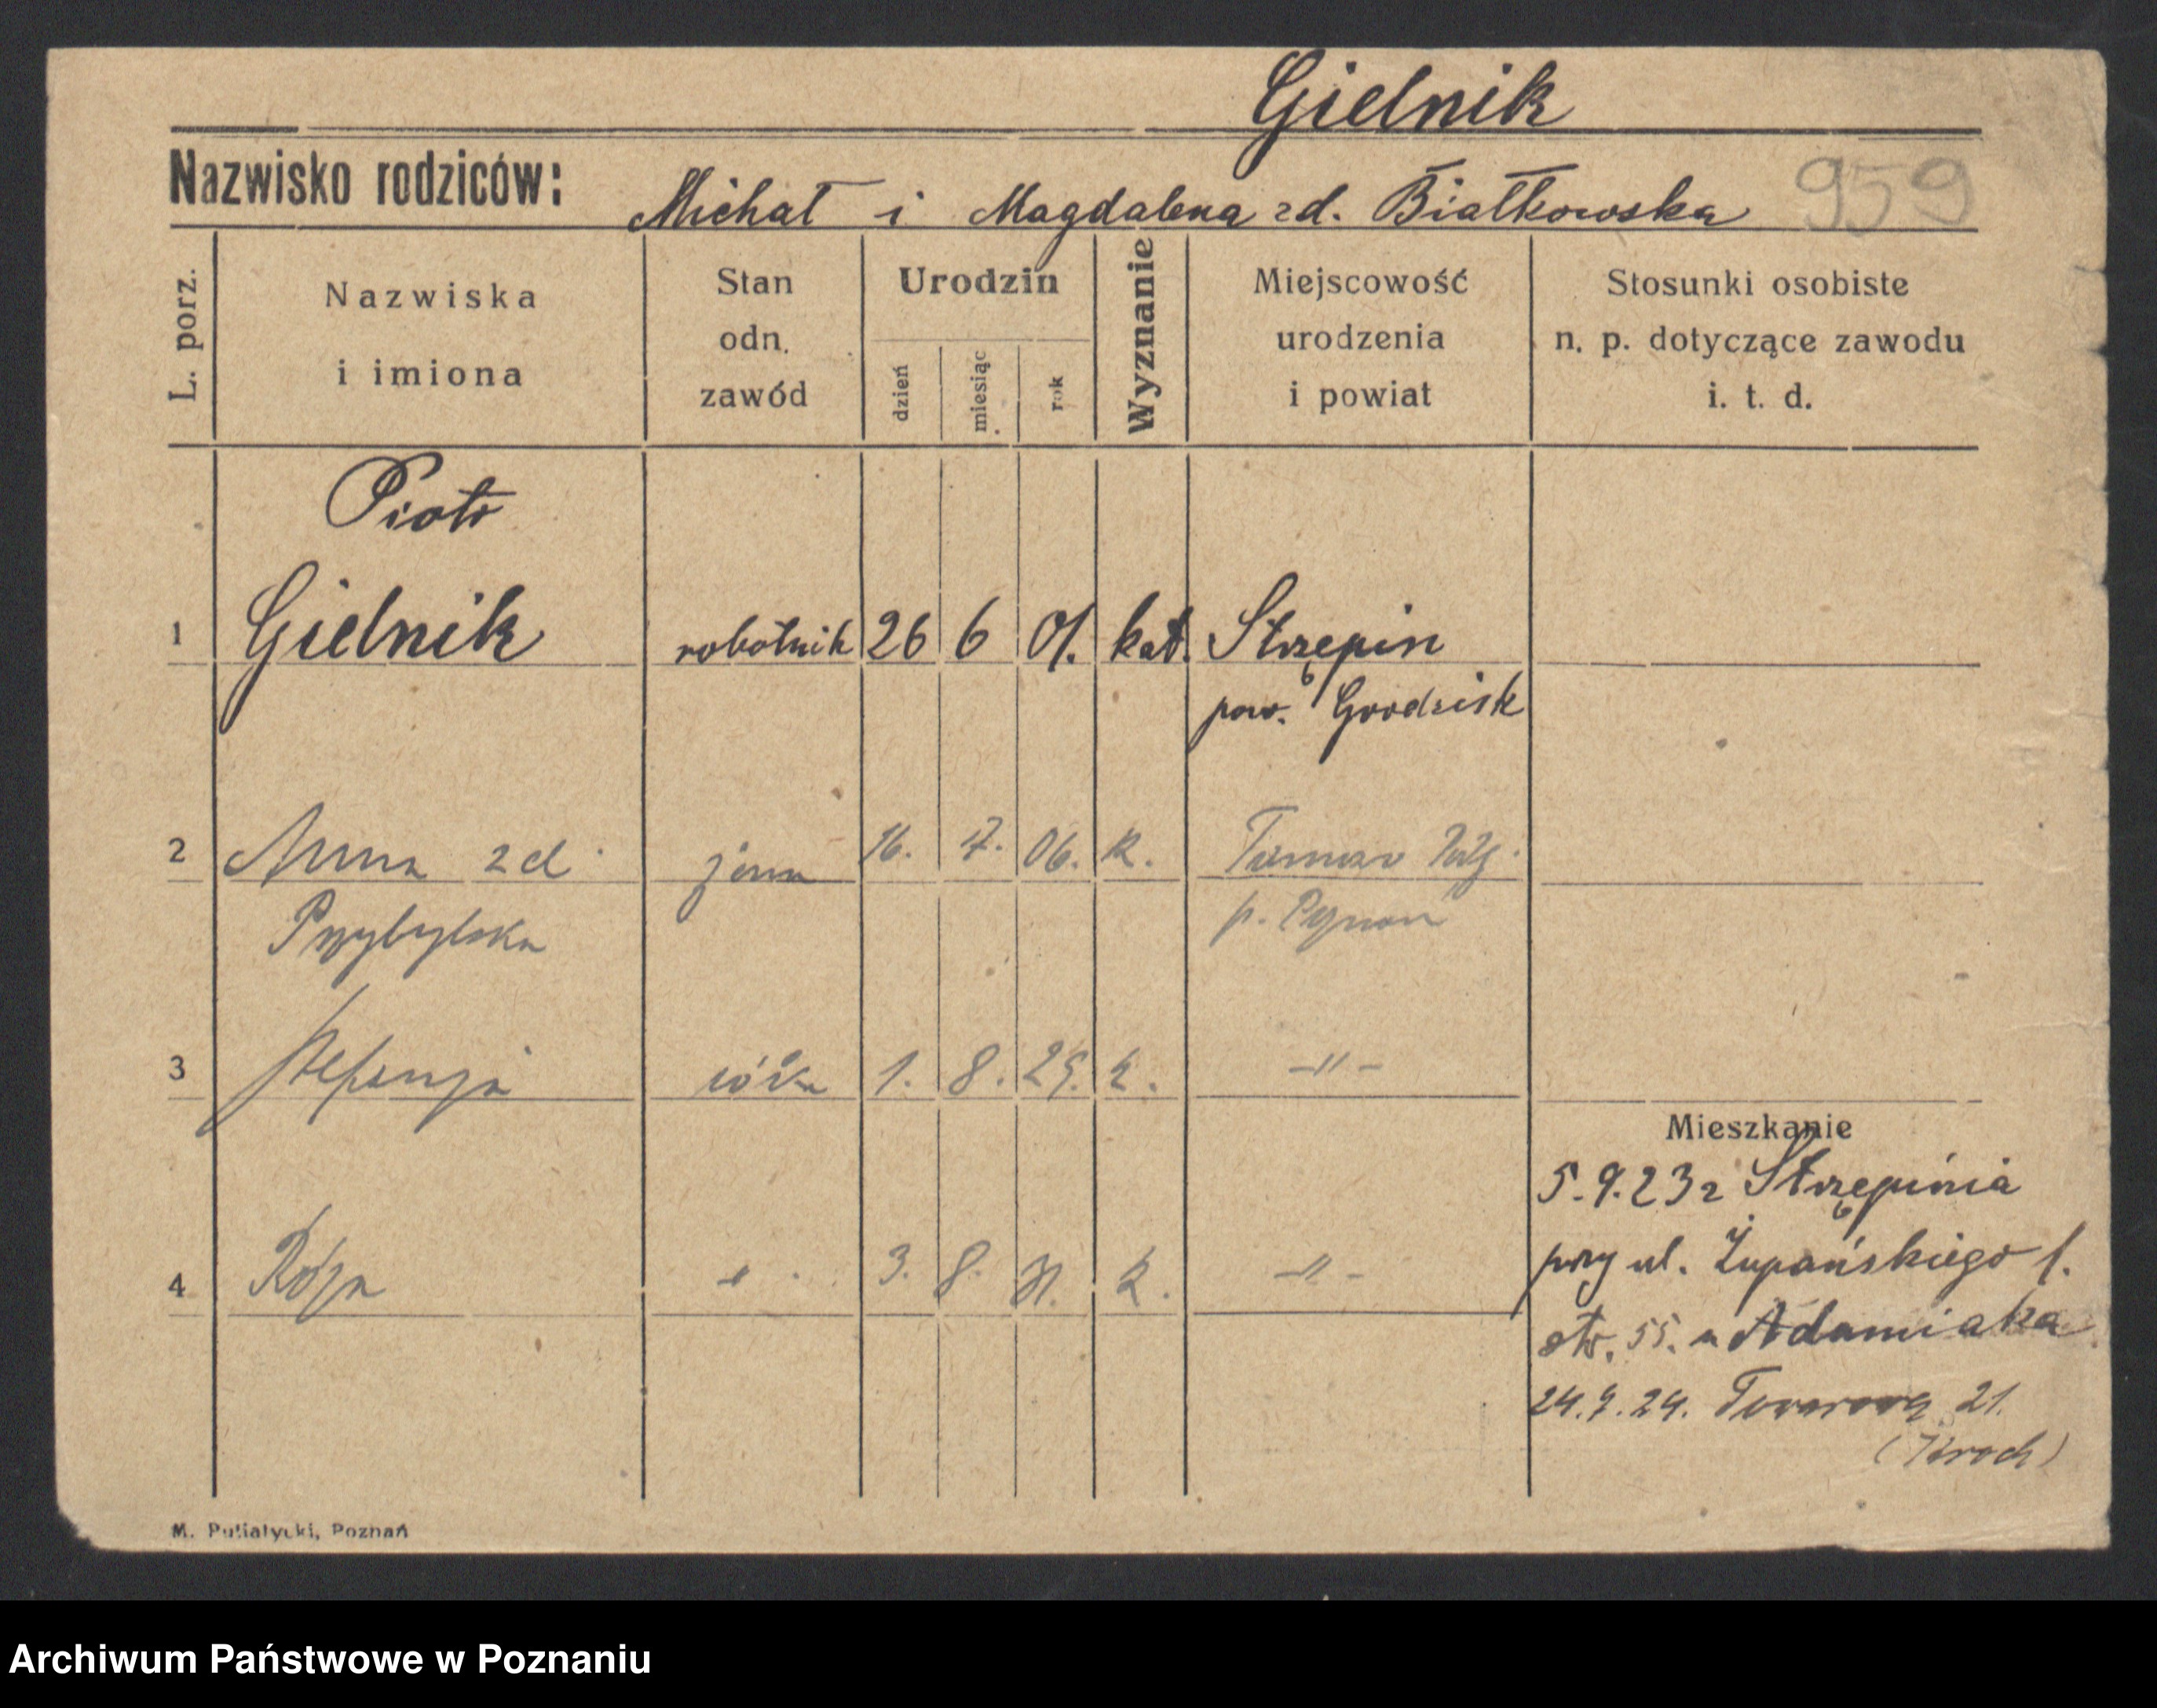 Gielnik
Nazwisko rodziców: Michał i Magdalena zd. Białkowska 959
L. porz. Nazwiska i imiona Stan odn. zawód Urodzin dzień miesiąc rok Wyznanie Miejscowość urodzenia i powiat Stosunki osobiste n. p. dotyczące zawodu i. t. d.
Piotr
1 Gielnik robotnik 26 6 01. kat. Strzępin
pow. Grodzisk
2 Anna zd żona 16. 7. 06. k.
Przybylska p.
3 Stefanja córka 1. 8. 29. k. -"-
Mieszkanie
5.9.23 z Strzępinia
przy ul. Żupańskiego l.
4 Róża " 3. 8. 31. k. -"-
str. 55. u Adamiaka
24.7.24. Towarowa 21.
(Kroch)
M. Putiatycki, Poznań
Archiwum Państwowe w Poznaniu